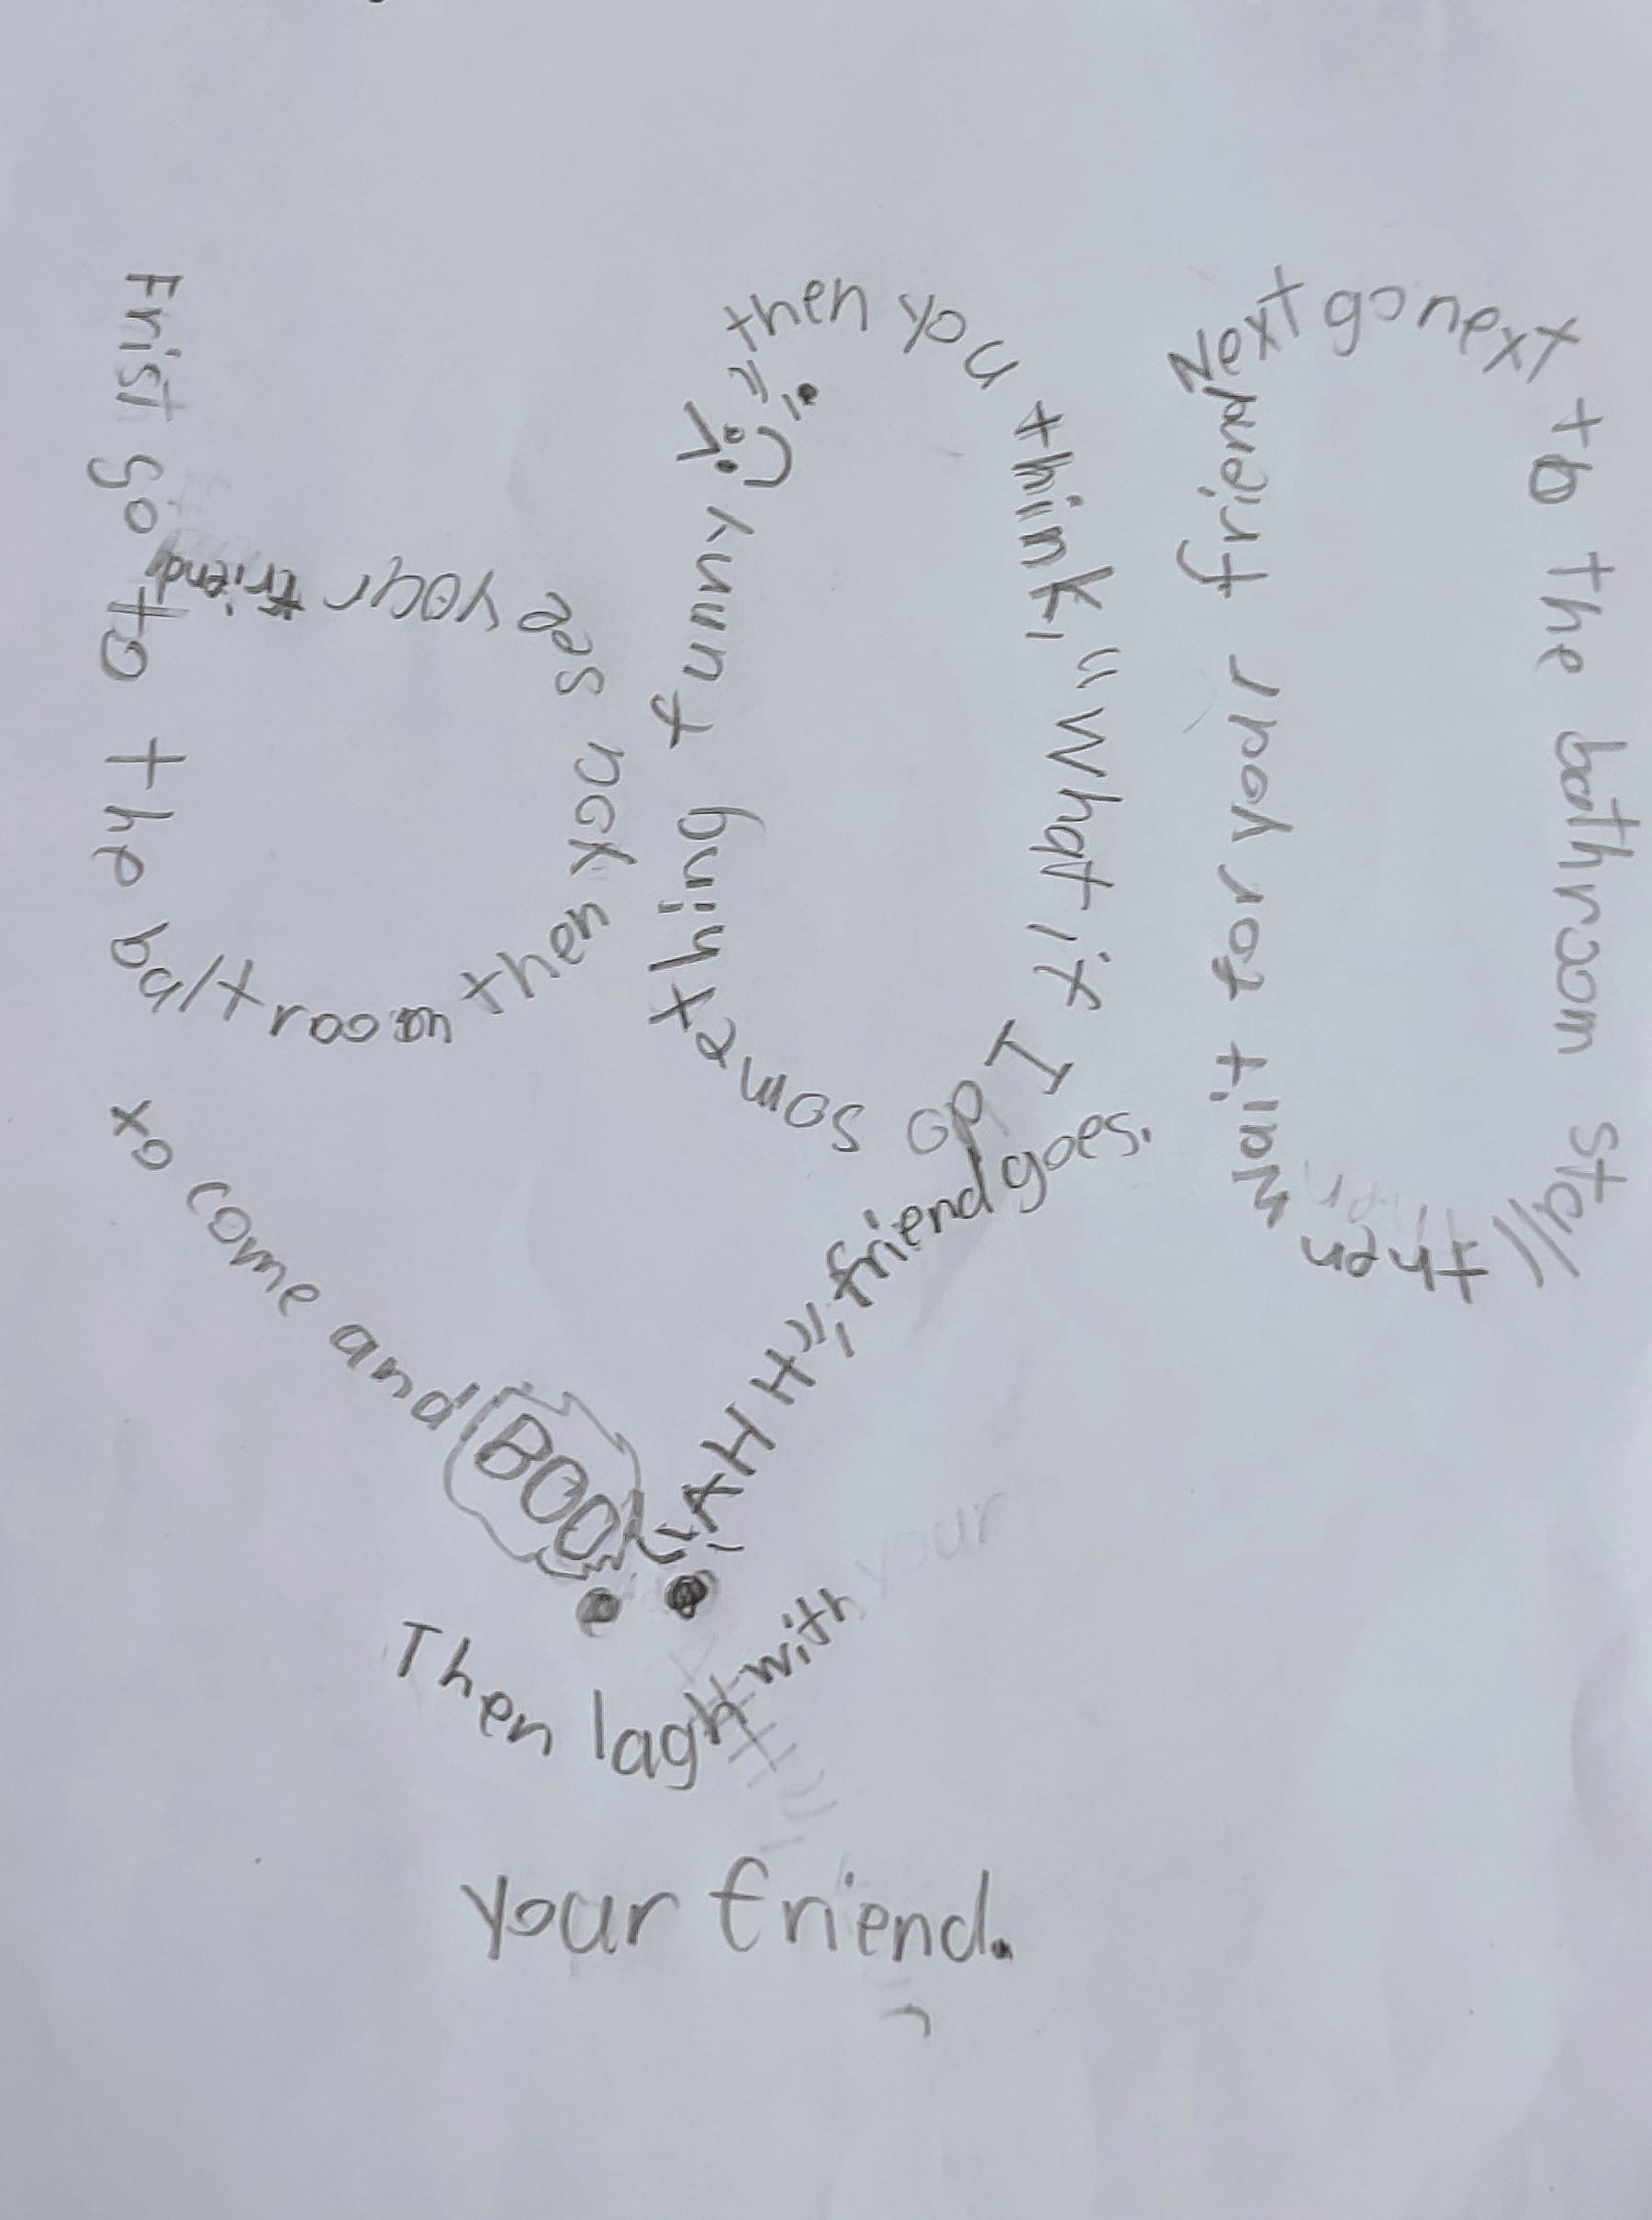 Frist go to the baltroom then you see your friend
then you think, "What if I do something funny!"
Next go next to the bathroom stall then wait for your friend
to come and BOO!
"AHHH", friend goes.
Then lagh with
your friend.